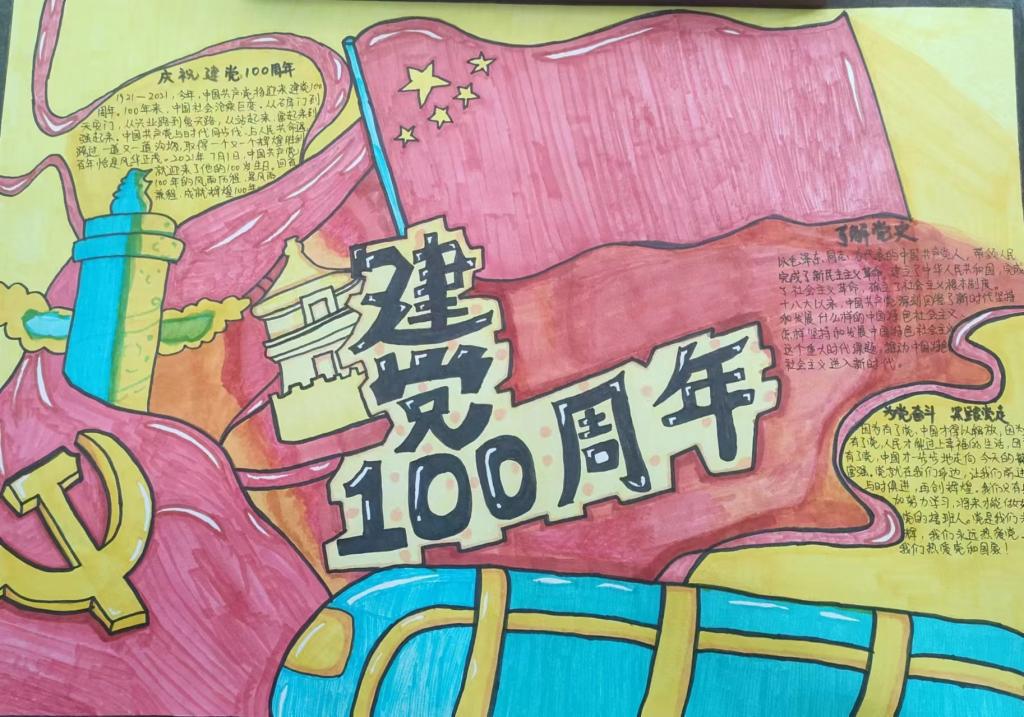 庆祝建党100周年
1921—2021,今年,中国共产党将迎来建党100
周年。100年来,中国社会沧桑巨变。从石库门到
天安门,从兴业路到复兴路,从站起来、富起来到
强起来。中国共产党与时代同步伐、与人民共命运
跨过一道又一道沟坎,取得一个又一个辉煌胜利
百年恰是风华正茂。2021年7月1日,中国共产党
就迎来了他的100岁生日。回首
100年的风雨历程
兼程,成就辉煌100年
建
党
100周年
了解党史
以毛泽东 为代表的中国共产党人,带领人民
完成了新民主主义革命,建立了中华人民共和国,完成
了社会主义革命,确立了社会主义基本制度。
十八大以来,中国共产党 回答了新时代坚持
和发展什么样的中国特色社会主义
怎样坚持和发展中国特色社会主义
这个重大时代课题,推动中国特色
社会主义进入新时代。
为党奋斗 跟党走
因为有了党,中国才得以解放,因为
有了党,人民才能过上幸福的生活,因
有了党,中国才一步步地走向今天的
富强。党就在我们身边,让我们
与时俱进,再创辉煌。我们只有
加努力学习,将来才能做好
党的接班人。党是我们
辉,我们永远热爱党
我们热爱党和国家!